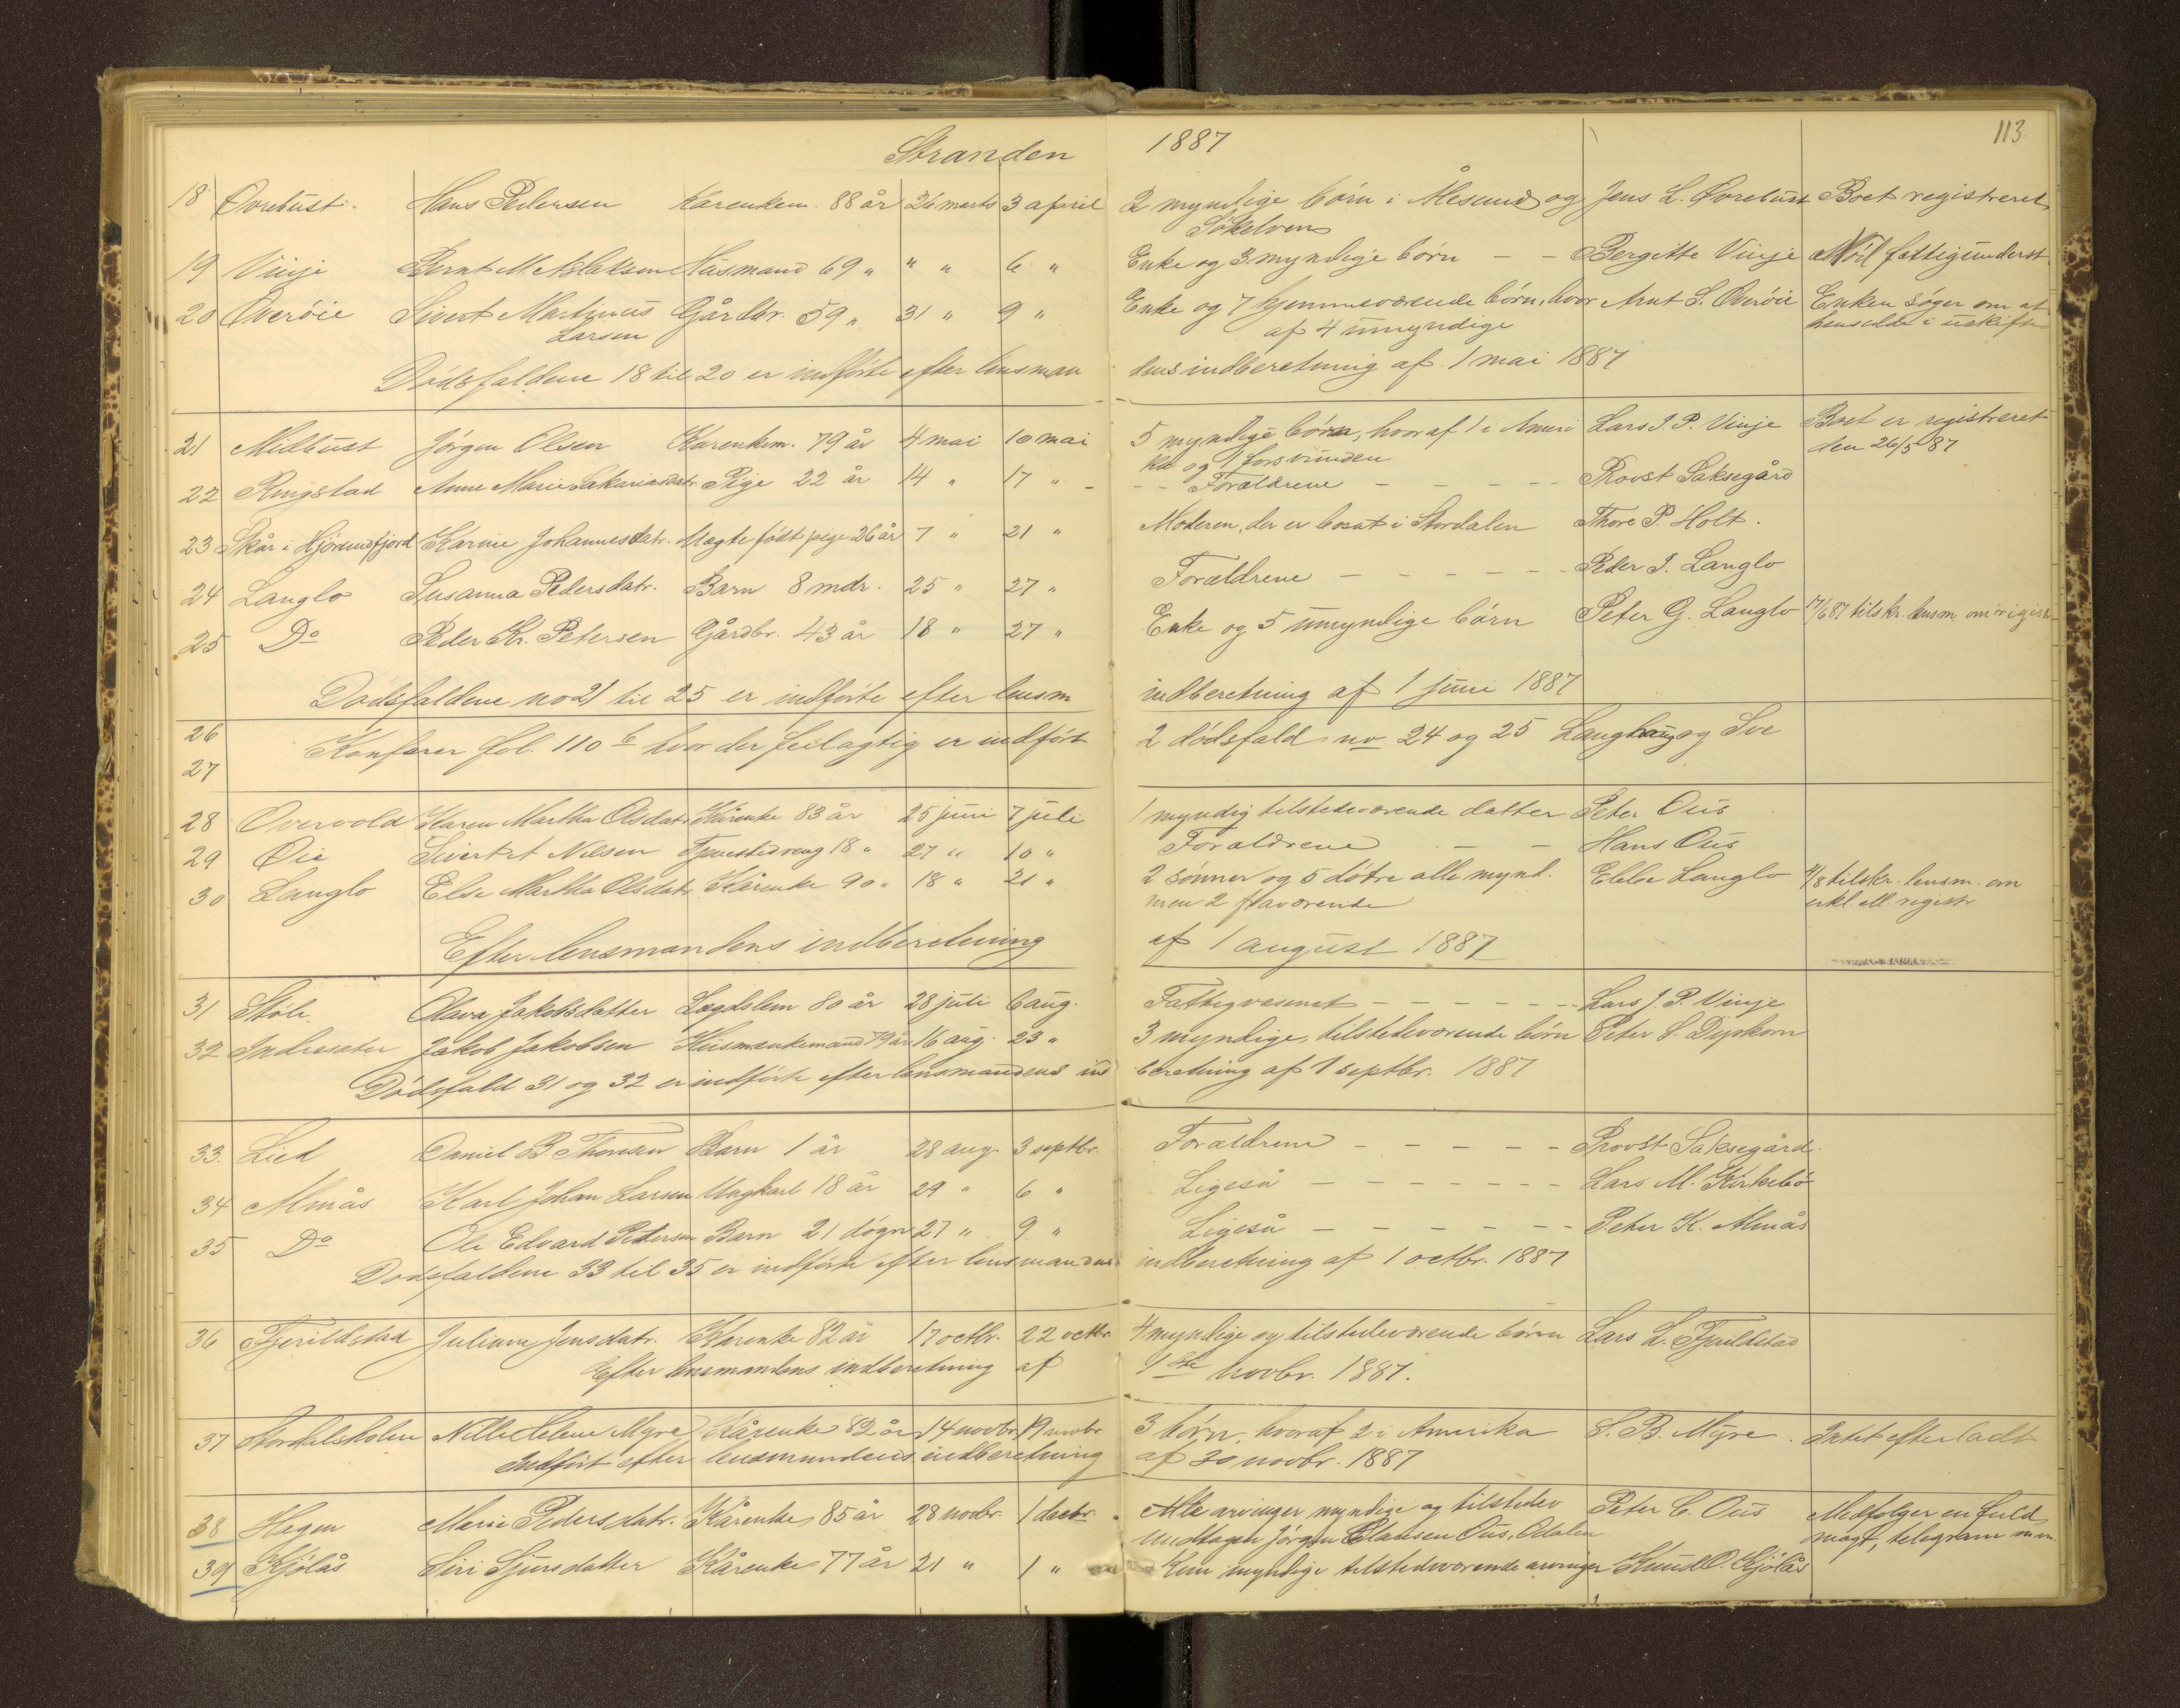 Stranden 1887 113.
18 Øvrebust. Hans Pedersen Kårenkem. 88 år 26 marts 3 april 2 myndige børn i Ålesund og Jens L. Øvrebust Boet registreret
Søkelven
19 Vinje Bernt M. Aslaksen Husmand 69 „ „ „ 6 „ Enke og 3 myndige børn – – Bergitte Vinje Nød fattigunderst.
20 Overøie Sivert Martinus Gårdbr. 59 „ 31 „ 9 „ Enke og 7 hjemmeværende børn, hvor Arnt S. Overøie Enken søger om at
Larsen af 4 umyndige hensidde i uskifte
Dødsfaldene 18 til 20 er indførte efter lensman dens indberetning af 1 mai 1887
21 Midbust Jørgen Olsen Kårenkem. 79 år 4 mai 10 mai 5 myndige børn, hvoraf 1 i Ameri Lars J. P. Vinje Boet er registreret
ka og 1 forsvunden den 26/5 87
22 Ringstad Anne Marie Sakariasdatr. Pige 22 år 14 „ 17 „ – – – Forældrene – – – – – Provst Saksegård
23 Skår i Hjørundfjord Karine Johannesdatr. Uægte født pige 26 år 7 „ 21 „ Moderen, der er bosat i Stordalen Thore P. Holt.
24 Langlo Susanna Pedersdatr. Barn 8 mdr. 25 „ 27 „ Forældrene – – – – – – Peder J. Langlo
25 Do Peder Kr. Petersen Gårdbr. 43 år 18 „ 27 „ Enke og 5 umyndige børn Peter G. Langlo 17/6 87 tilskr. lensm. om registr
Dødsfaldene no 21 til 25 er indførte efter lensm indberetning af 1 juni 1887
26 Konferer fol. 110 b hvor der feilagtig er indført 2 dødsfald no 24 og 25 Langhaug og Sve
27
28 Overvold Karen Martha Olsdatr. Kårenke 83 år 25 juni 7 juli 1 myndig tilstedeværende datter Peter Ous
29 Øie Sivert Nilsen Tjenestedreng 18 „ 27 „ 10 „ Forældrene – – Hans Ous
30 Langlo Else Martha Olsdatr. Kårenke 90 „ 18 „ 21 „ 2 sønner og 5 døtre alle mynd. Ebbe Langlo 4/8 tilskr. lensm. om
men 2 fraværende erkl. ell. registr
Efter lensmandens indberetning af 1 august 1887
31 Støle Olava Jakobsdatter Lægdslem 80 år 28 juli 6 aug. Fattigvæsenet – – – – – – Lars J. P. Vinje
32 Indreseter Jakob Jakobsen Husmankemand 79 år 16 aug. 23 „ 3 myndige, tilstedeværende børn Peter S. Dypkorn
Dødsfald 31 og 32 er indførte efter lensmandens ind beretning af 1 septbr. 1887
33. Lied Daniel B. Thoresen Barn 1 år 28 aug. 3 septbr. Forældrene – – – – – Provst Saksegård.
34 Almås Karl Johan Larsen Ungkarl 18 år 29 „ 6 „ Ligeså – – – – – – – Lars M. Kirkebø
35 Do Ole Edvard Pedersen Barn 21 døgn 27 „ 9 „ Ligeså – – – – – – Peter K. Almås
Dødsfaldene 33 til 35 er indførte efter lensmandens indberetning af 1 octbr. 1887
36 Fjerildstad Juliane Jensdatr. Kårenke 82 år 17 octbr. 22 octbr. 4 myndige og tilstedeværende børn Lars L. Fjerildstad
Efter lensmandens indberetning af 1ste novbr. 1887.
37 Stordalsholen Nille Helene Myre Kårenke 82 år 14 novbr. 19 novbr 3 børn, hvoraf 2 i Amerika S. B. Myre. Intet efterladt
Indført efter lensmandens indberetning af 30 novbr. 1887
38 Hegen Marie Pedersdatr. Kårenke 85 år 28 novbr. 1 decbr. Alle arvinger myndige og tilstedev Peter C. Ous Medfølger en fuld
undtagen Jørgen Clausen Ous, Odalen magt, telegram m.m.
39 Kjølås Siri Sjursdatter Kårenke 77 år 21 „ 1 „ Kun myndige tilstedeværende arvinger Knud O. Kjølås